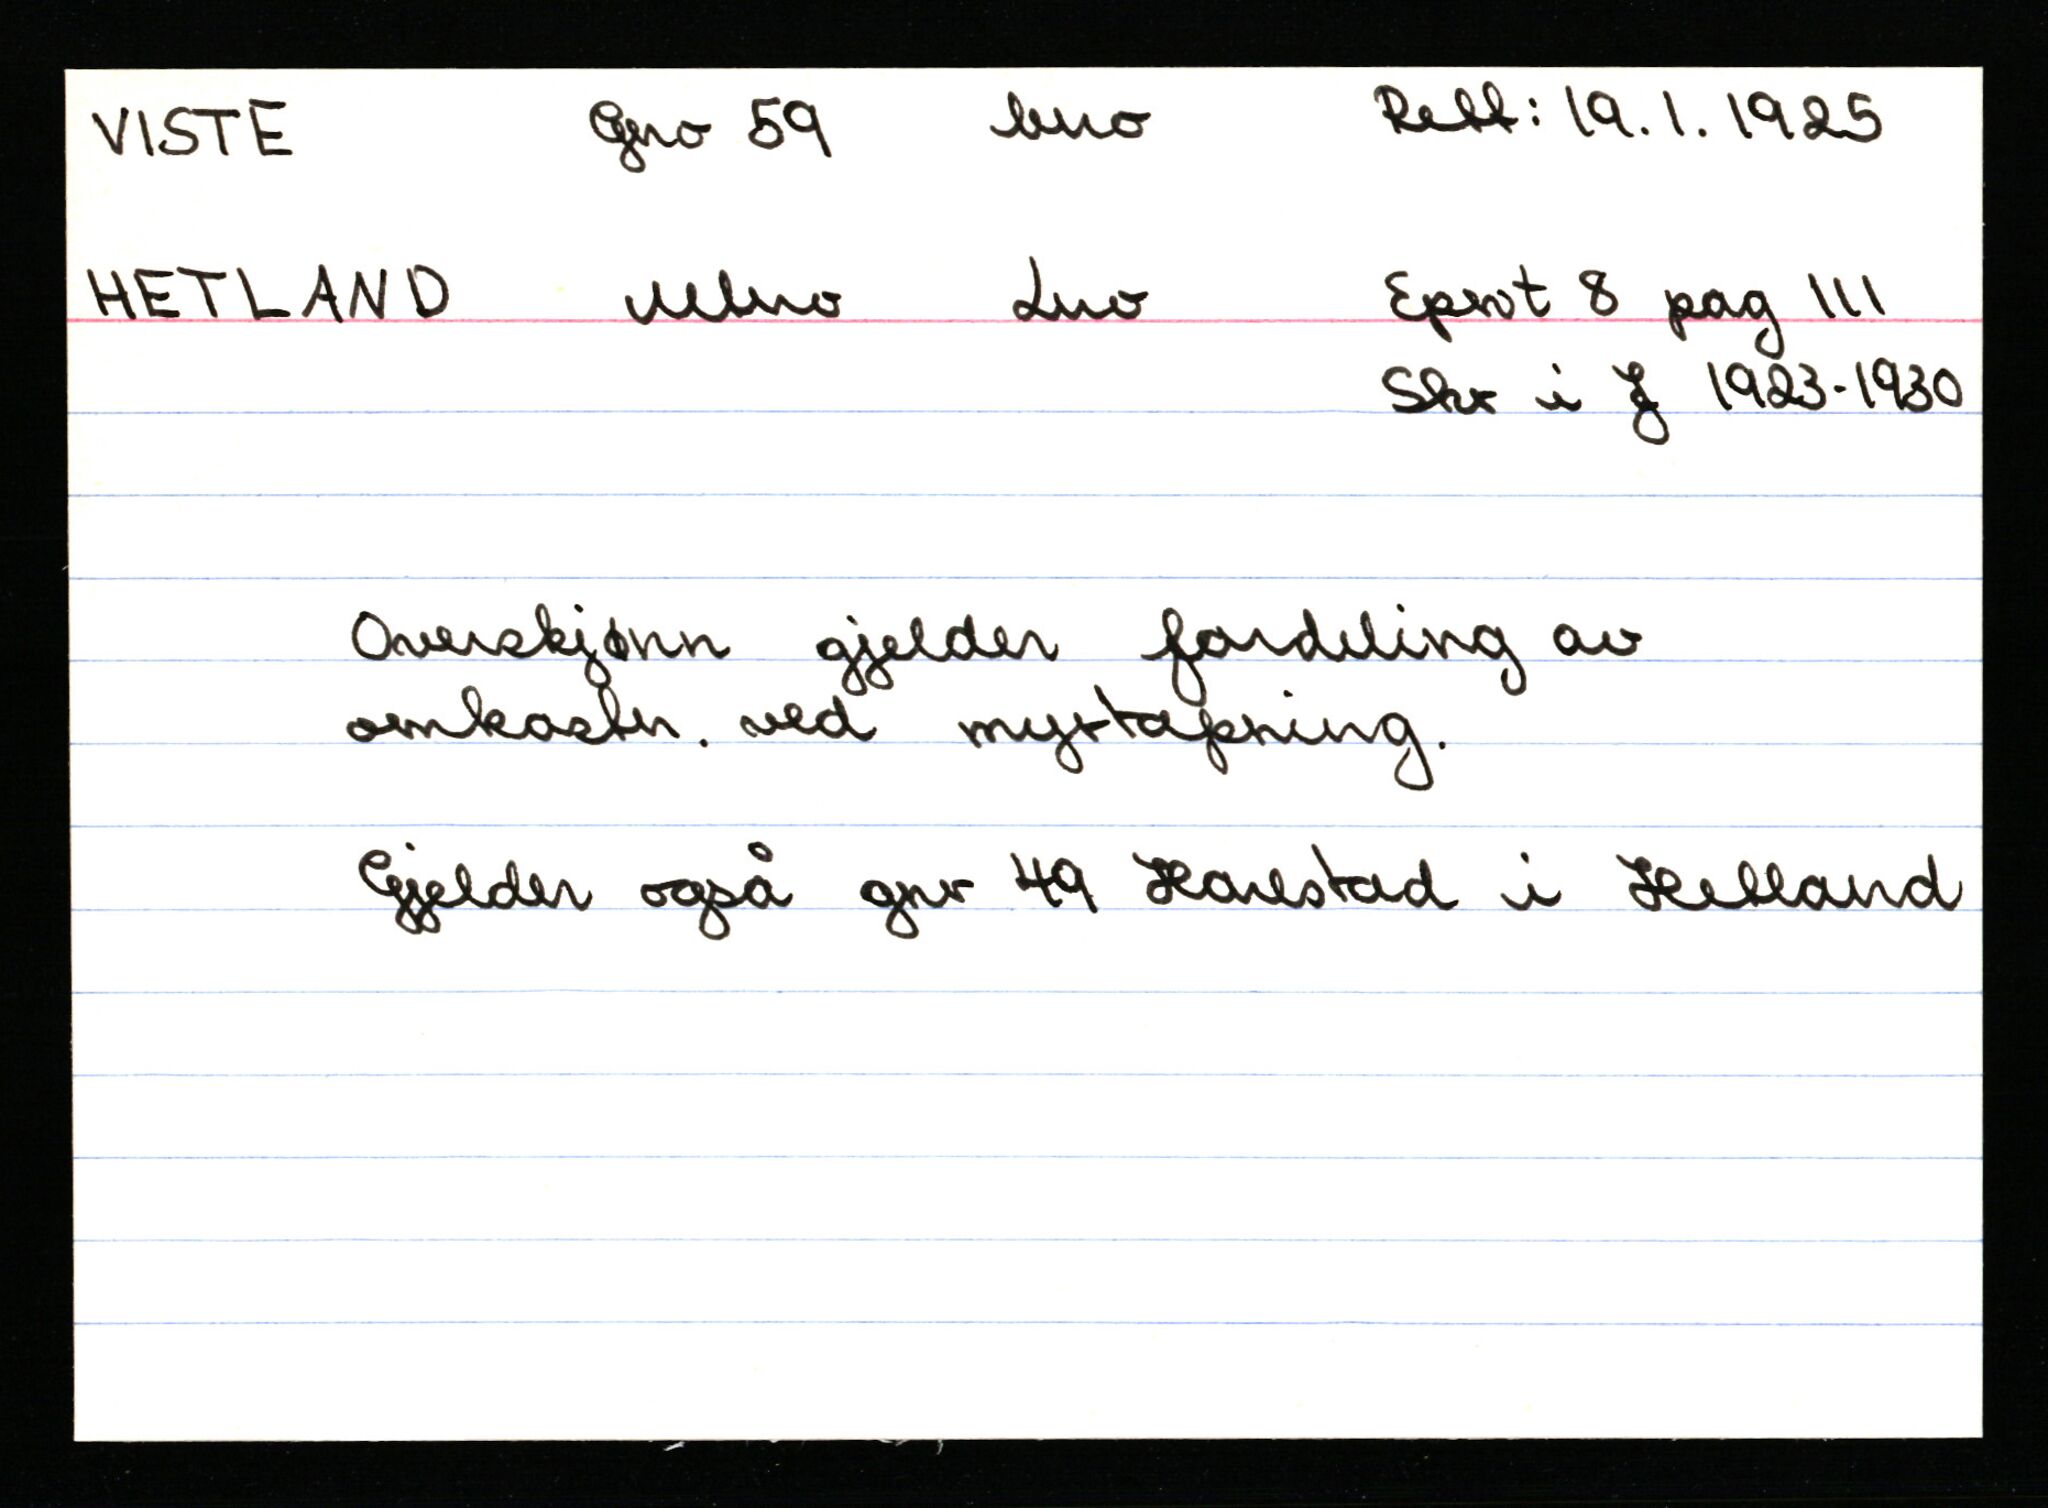 VISTE Gno 59 bno Rett: 19.1.1925
HETLAND Mtno Lno Eprot 8 pag 111
Skr i J 1923-1930
Overskjønn gjelder fordeling av
omkostn. ved myrtapning.
Gjelder også gnr 49 Harestad i Hetland